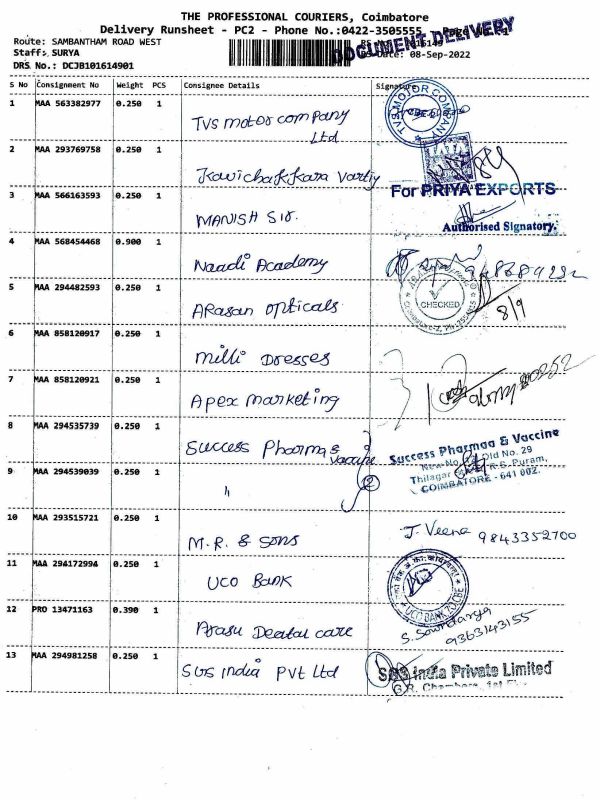 THE PROFESSIONAL COURIERS, Coimbatore
Delivery Runsheet - PC2 - Phone No.:0422-3505555
DOCUMENT DELIVERY
Route: SAMBANTHAM ROAD WEST
Staff: SURYA
Date: 08-Sep-2022
DRS No.: DCJB101614901
S No Consignment No Weight PCS Consignee Details Signature
1 MAA 563382977 0.250 1
TVS motor company
Ltd
TVS MOTOR COMPANY
2 MAA 293769758 0.250 1
Kavichakkara Vartiy
TATA
3 MAA 566163593 0.250 1
MANISH Sir.
For PRIYA EXPORTS
Authorised Signatory.
4 MAA 568454468 0.900 1
Naadi Academy
5 MAA 294482593 0.250 1
Arasan opticals
CHECKED
8/9
6 MAA 858120917 0.250 1
milli Dresses
7 MAA 858120921 0.250 1
Apex marketing
8 MAA 294535739 0.250 1
Success Pharmaa &
Vaccine
Success Pharmaa & Vaccine
Old No. 29
Thilagar R.S. Puram,
COIMBATORE - 641 002.
9 MAA 294539039 0.250 1
"
2
10 MAA 293515721 0.250 1
M.R. & Sons
J. Veena 9843352700
11 MAA 294172994 0.250 1
UCO Bank
UCO BANK
12 PRO 13471163 0.390 1
Arasu Dental care
S. Soundarya
9363143155
13 MAA 294981258 0.250 1
SGS India Pvt Ltd
SGS India Private Limited
G.R. Chambers, 1st